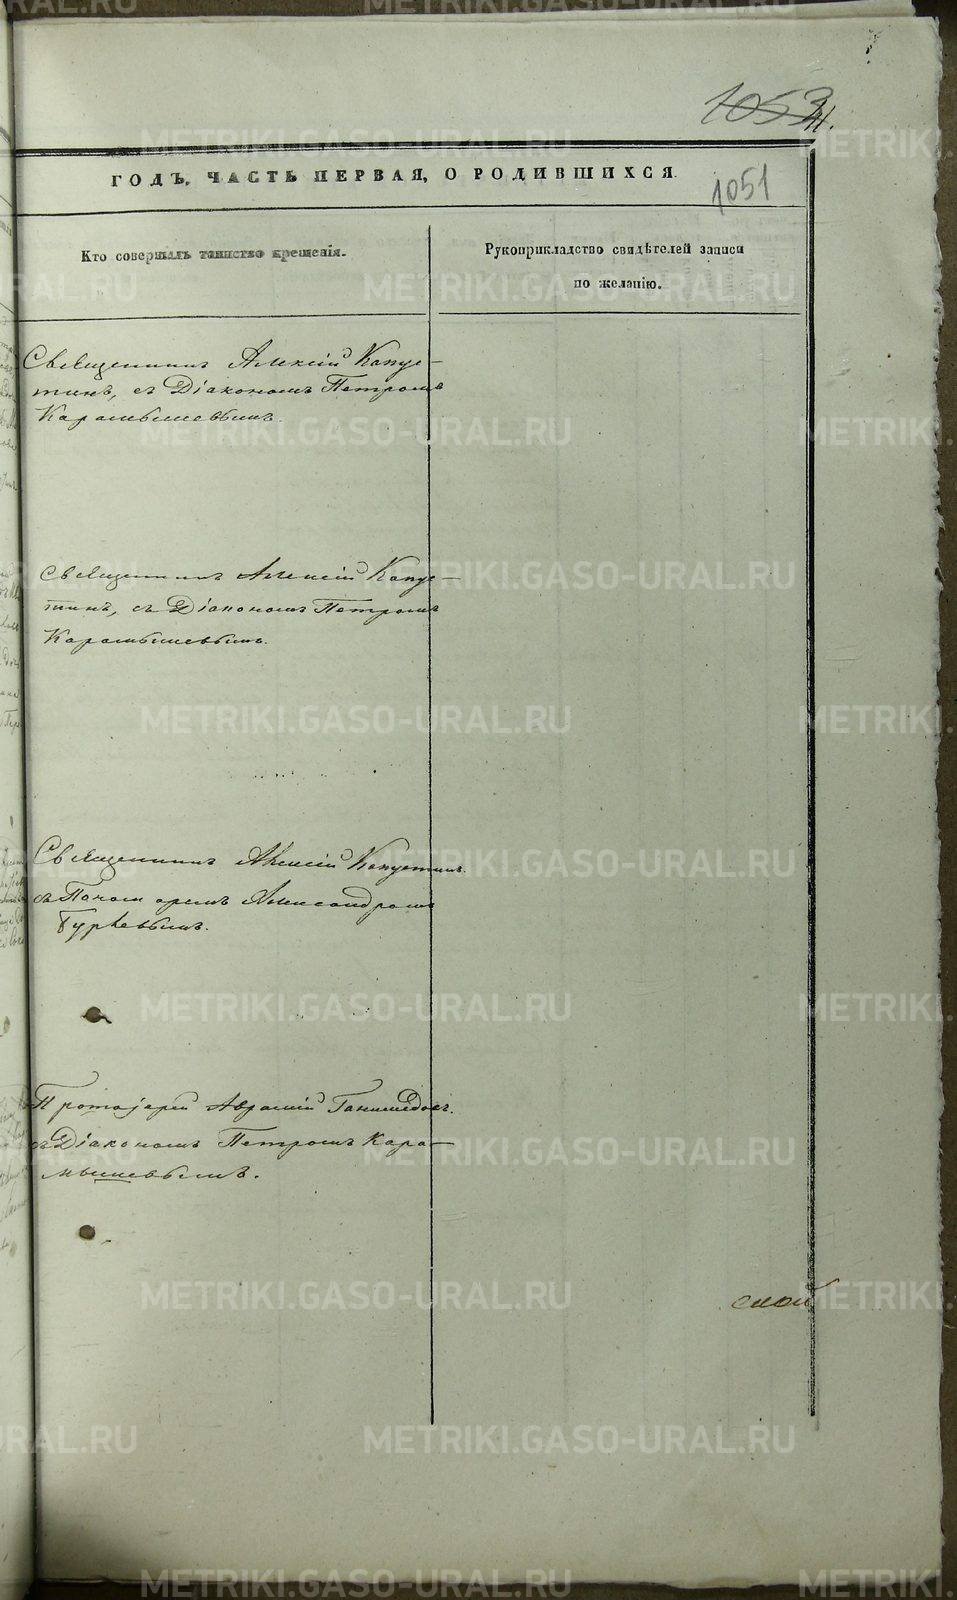 1053
1051
ГОДЪ, ЧАСТЬ ПЕРВАЯ, О РОДИВШИХСЯ.
Кто совершалъ таинство крещенія.
Рукоприкладство свидѣтелей записи
по желанію.
Священникъ Алексій Капус-
тинъ, съ Діакономъ Петромъ
Карамышевымъ.
Священникъ Алексій Капус-
тинъ, съ Діакономъ Петромъ
Карамышевымъ.
Священникъ Алексій Капустинъ.
съ Александромъ
Гурьевымъ.
Протоіерей Аврамій
съ Діакономъ Петромъ Кара-
мышевымъ.
METRIKI.GASO-URAL.RU